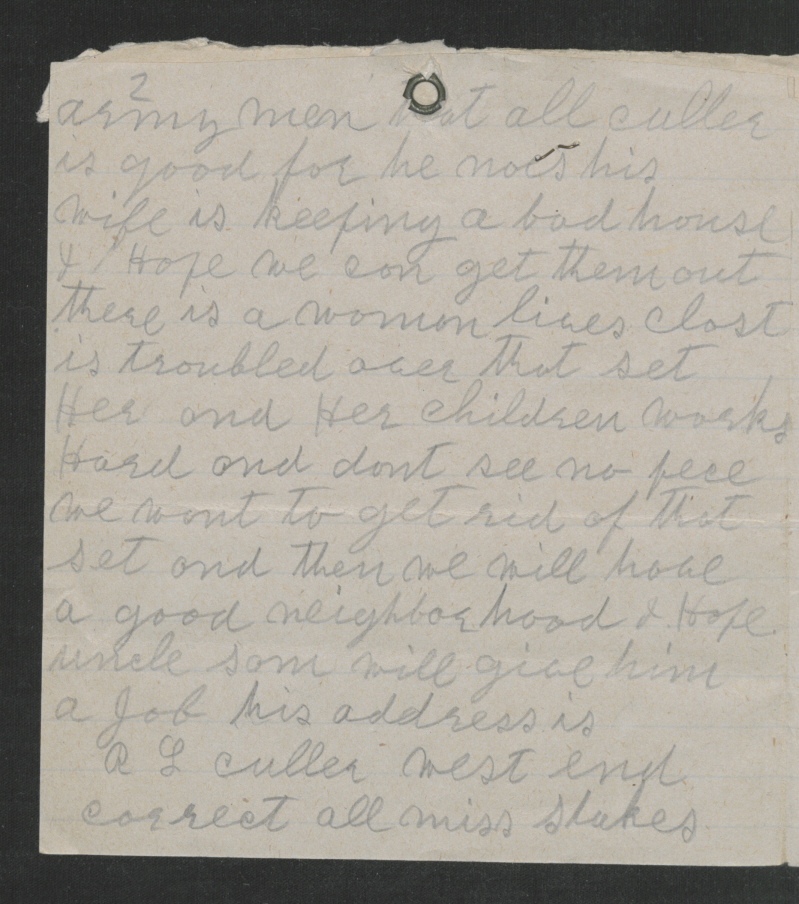 2
army men that all culler
is good for he noes his
wife is keeping a bad house
& I Hope we can get them out
there is a woman lives clost
is troubled over that set
Her and Her children works
Hard and dont see no pece
we want to get rid of that
set and then we will have
a good neighbor hood & Hope
uncle sam will give him
a Job his address is
R L culler west end
correct all miss stakes